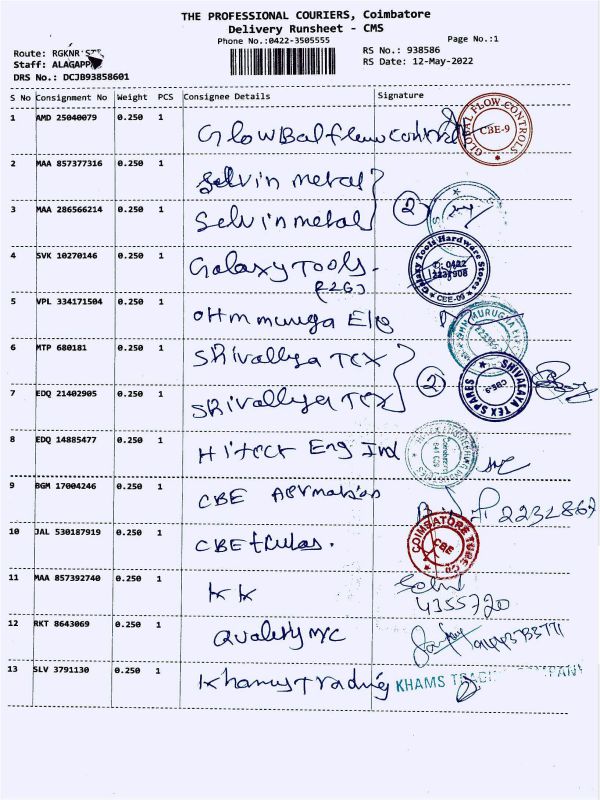 THE PROFESSIONAL COURIERS, Coimbatore
Delivery Runsheet - CMS
Phone No.:0422-3505555
Page No.:1
Route: RGKNR
RS No.: 938586
Staff: ALAGAPPA
RS Date: 12-May-2022
DRS No.: DCJB93858601
S No Consignment No Weight PCS Consignee Details Signature
1 AMD 25040079 0.250 1 Glowbal flow controls
GLOBAL FLOW CONTROLS CBE-9
2 MAA 857377316 0.250 1 Selvin metal
3 MAA 286566214 0.250 1 Selvinmetal 2
4 SVK 10270146 0.250 1 Galaxy Tools.
Galaxy Tools Hardware Stores CBE-09
5 VPL 334171504 0.250 1 OHm muruga
6 MTP 680181 0.250 1 SRivallya Tex
7 EDQ 21402905 0.250 1 SRivallya Tex 2
SHIVALAYA TEX SPARES CBE-9
8 EDQ 14885477 0.250 1 Hiteck Eng Ind
9 BGM 17004246 0.250 1 CBE
10 JAL 530187919 0.250 1 CBE
COIMBATORE CBE
11 MAA 857392740 0.250 1 KK
4355720
12 RKT 8643069 0.250 1 Quality m/c
13 SLV 3791130 0.250 1 Khams Trading
KHAMS TRADING COMPANY